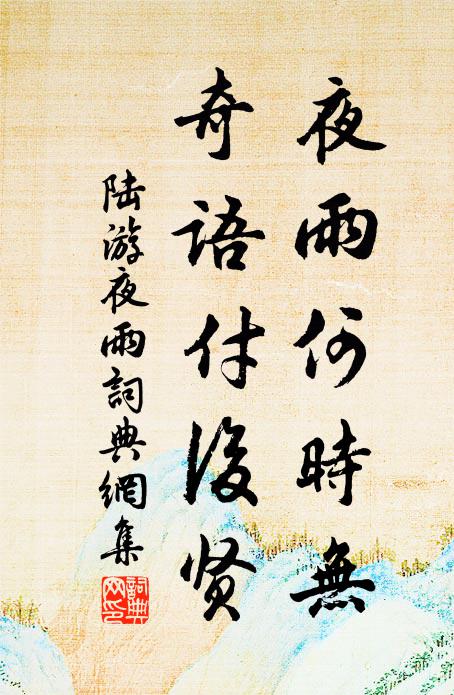 夜雨何時無
奇語付後贤
陆游夜雨詞典網集
詞典